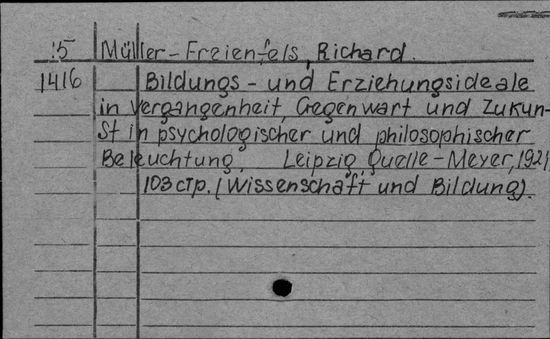 15 Müller-Frzienfels, Richard.
1416 Bildungs - und Erziehungsideale
in Vergangenheit, Gegenwart und Zukun-
st in psychologischer und philosophischer
Beleuchtung. Leipzig, Quelle-Meyer, 1921
103 стр. (Wissenschaft und Bildung).